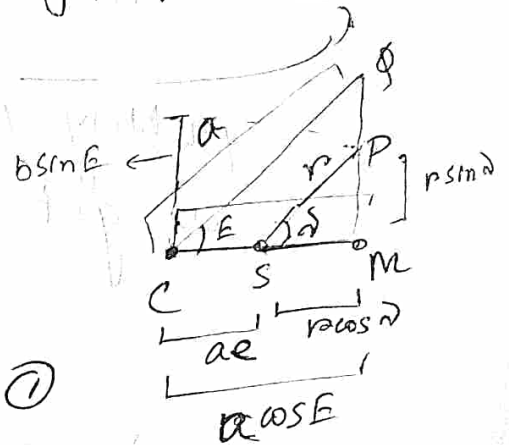 Q
a
b sin E ←
r
P
r sin ν
E
ν
C
S
M
ae
r cos ν
①
a cos E